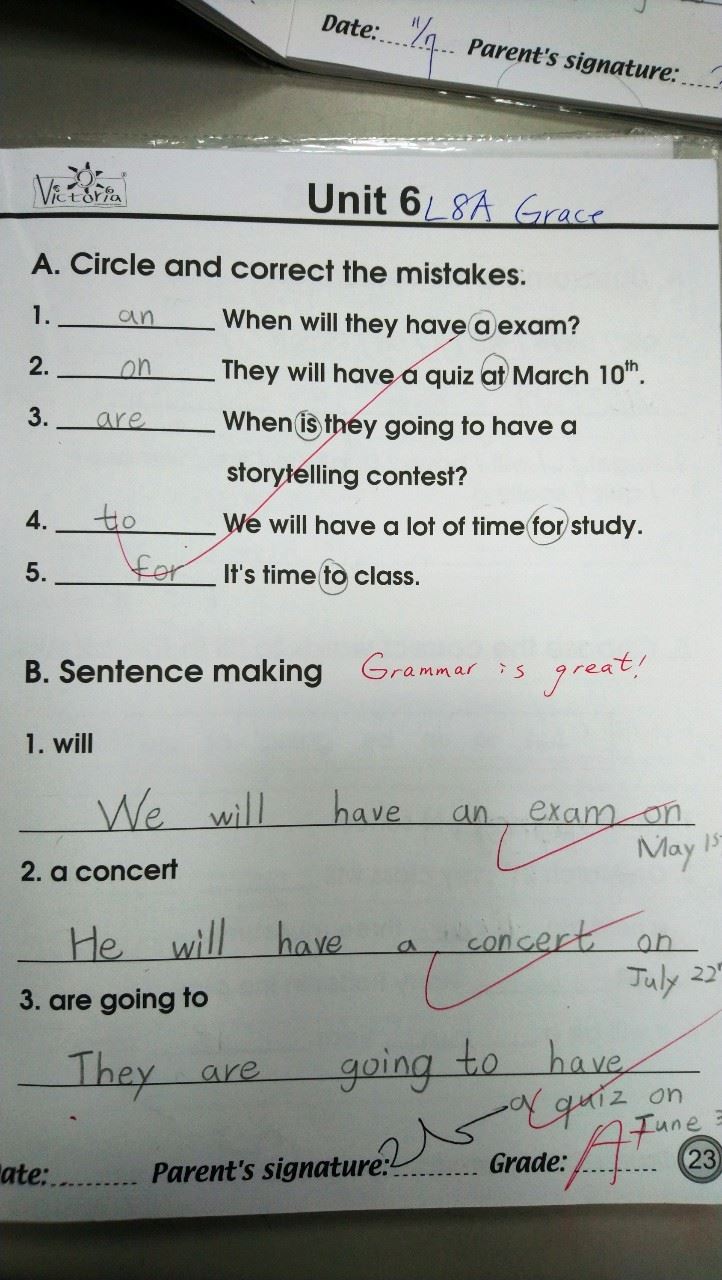 Date: 11/7 Parent's signature:
Victoria
Unit 6 L8A Grace
A. Circle and correct the mistakes.
1. an When will they have a exam?
2. on They will have a quiz at March 10th.
3. are When is they going to have a
storytelling contest?
4. to We will have a lot of time for study.
5. for It's time to class.
B. Sentence making Grammar is great!
1. will
We will have an exam on
May 1s
2. a concert
He will have a concert on
July 22
3. are going to
They are going to have
a quiz on
June 3
ate: Parent's signature: Grade: A+ 23